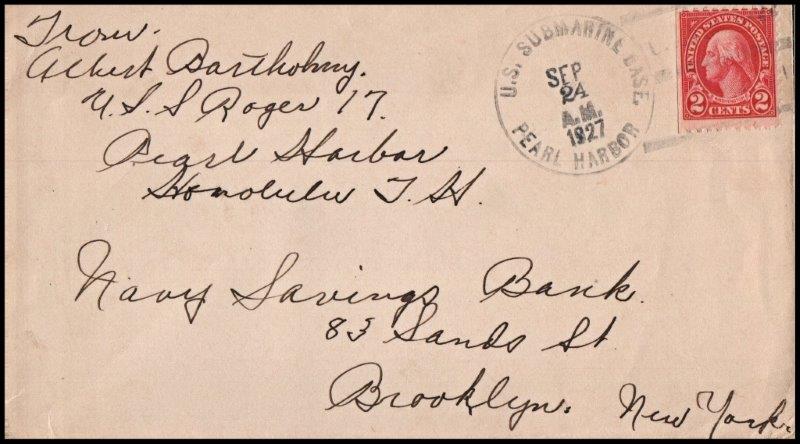 From.
Albert Bartholmy.
U.S.S Roger 17.
Pearl Harbor
Honolulu T.H.
U.S. SUBMARINE BASE,
SEP
24
A.M.
1927
PEARL HARBOR
UNITED STATES POSTAGE
WASHINGTON
2 CENTS 2
Navy Savings Bank.
83 Sands St
Brooklyn. New York.